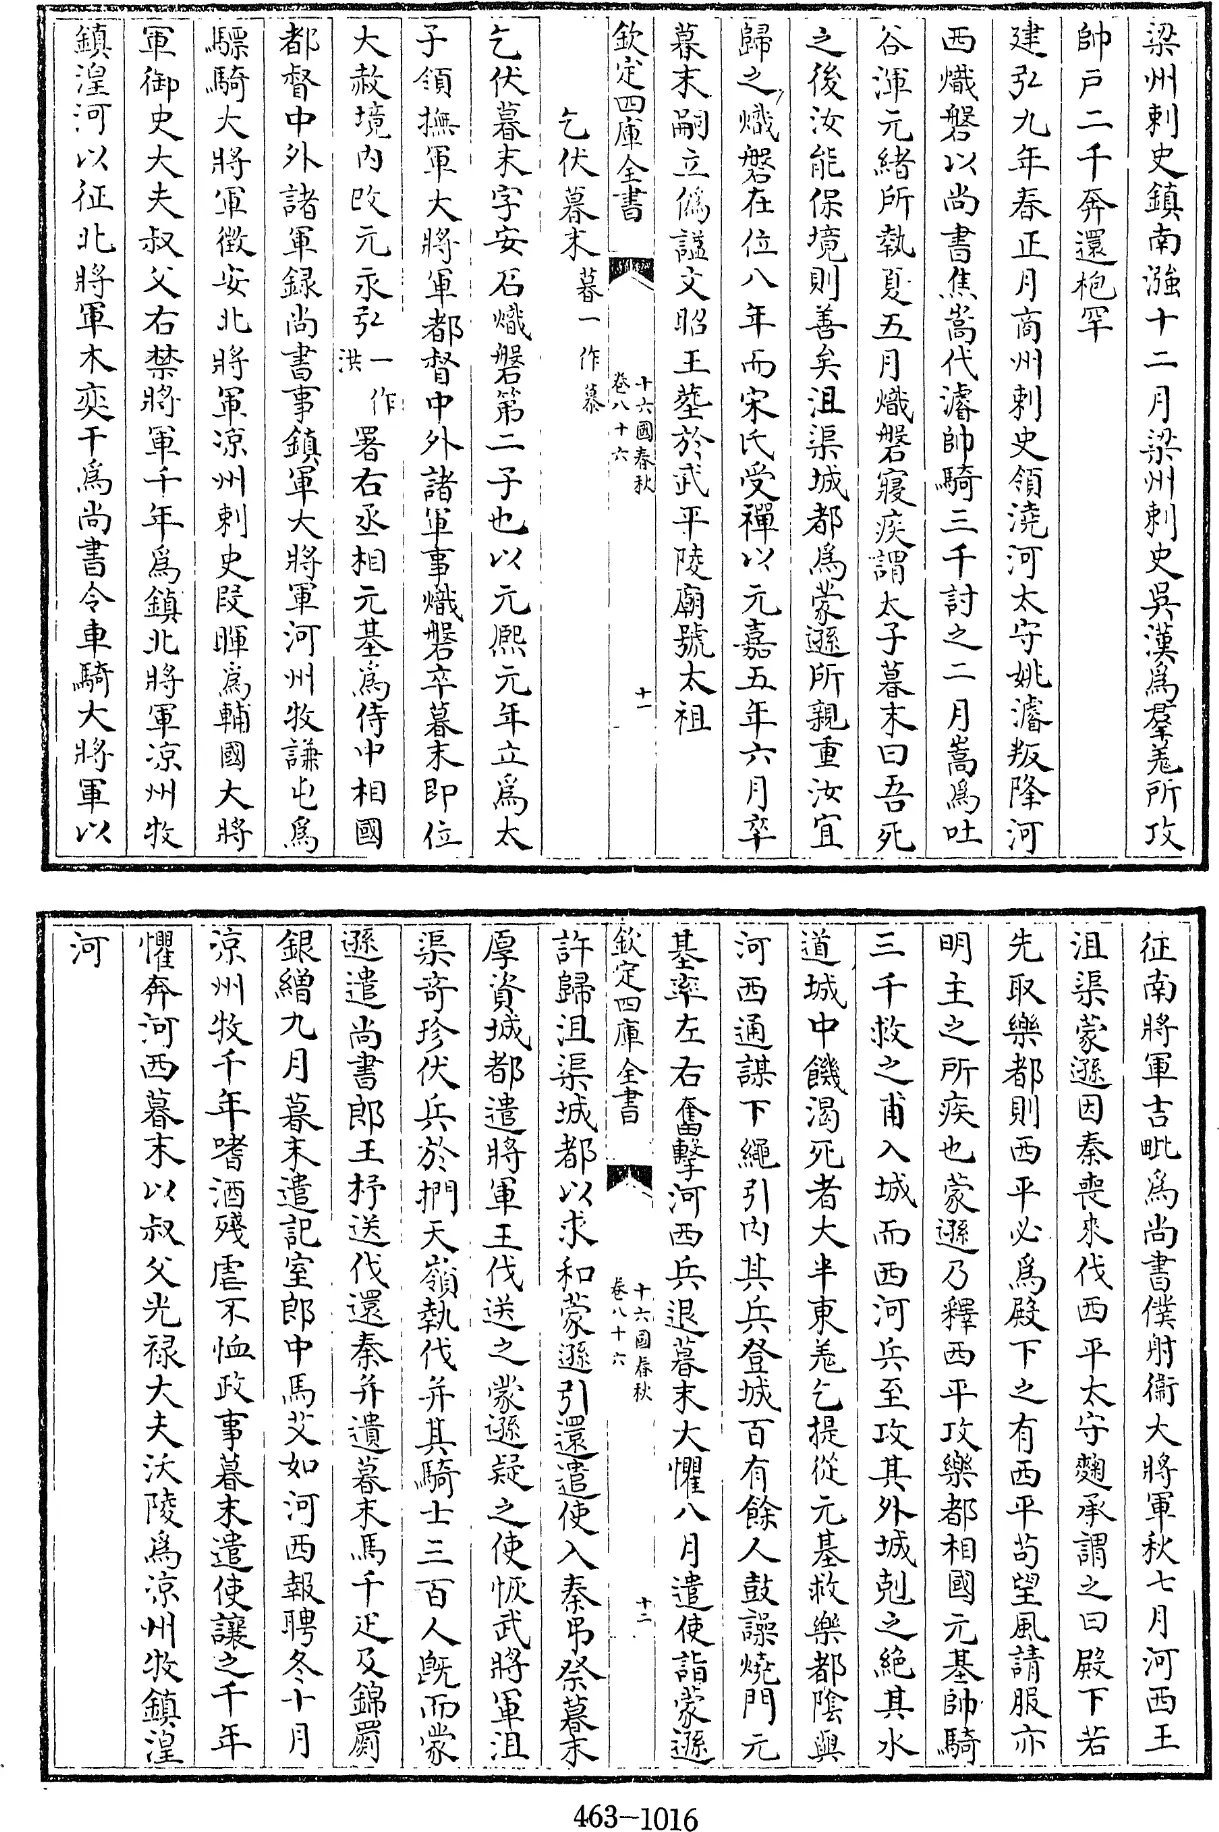 梁州刺史鎮南漒十二月梁州刺史吳漢為羣羗所攻
帥戸二千奔還枹罕
建弘九年春正月商州刺史領澆河太守姚濬叛降河
西熾磐以尚書焦嵩代濬帥騎三千討之二月嵩為吐
谷渾元緒所執夏五月熾磐寢疾謂太子暮末曰吾死
之後汝能保境則善矣沮渠城都為蒙遜所親重汝宜
歸之熾磐在位八年而宋氏受禪以元嘉五年六月卒
暮末嗣立偽諡文昭王葬於武平陵廟號太祖
欽定四庫全書 十六國春秋 卷八十六 十一
乞伏暮末 暮一作慕
乞伏暮末字安石熾磐第二子也以元熈元年立為太
子領撫軍大將軍都督中外諸軍事熾磐卒暮末即位
大赦境内改元永弘 一作洪 署右丞相元基為侍中相國
都督中外諸軍録尚書事鎮軍大將軍河州牧謙屯為
驃騎大將軍徵安北將軍凉州刺史段暉為輔國大將
軍御史大夫叔父右禁將軍千年為鎮北將軍凉州牧
鎮湟河以征北將軍木奕干為尚書令車騎大將軍以
征南將軍吉毗為尚書僕射衛大將軍秋七月河西王
沮渠蒙遜因秦喪來伐西平太守麴承謂之曰殿下若
先取樂都則西平必為殿下之有西平苟望風請服亦
明主之所疾也蒙遜乃釋西平攻樂都相國元基帥騎
三千救之甫入城而西河兵至攻其外城剋之絶其水
道城中饑渴死者大半東羗乞提從元基救樂都陰與
河西通謀下繩引内其兵登城百有餘人鼓譟燒門元
基率左右奮擊河西兵退暮末大懼八月遣使詣蒙遜
欽定四庫全書 十六國春秋 卷八十六 十二
許歸沮渠城都以求和蒙遜引還遣使入秦弔祭暮末
厚資城都遣將軍王伐送之蒙遜疑之使恢武將軍沮
渠竒珍伏兵於捫天嶺執伐并其騎士三百人既而蒙
遜遣尚書郎王杼送伐還秦并遺暮末馬千疋及錦罽
銀繒九月暮末遣記室郎中馬艾如河西報聘冬十月
凉州牧千年嗜酒殘虐不恤政事暮末遣使讓之千年
懼奔河西暮末以叔父光禄大夫沃陵為凉州牧鎮湟
河
463-1016